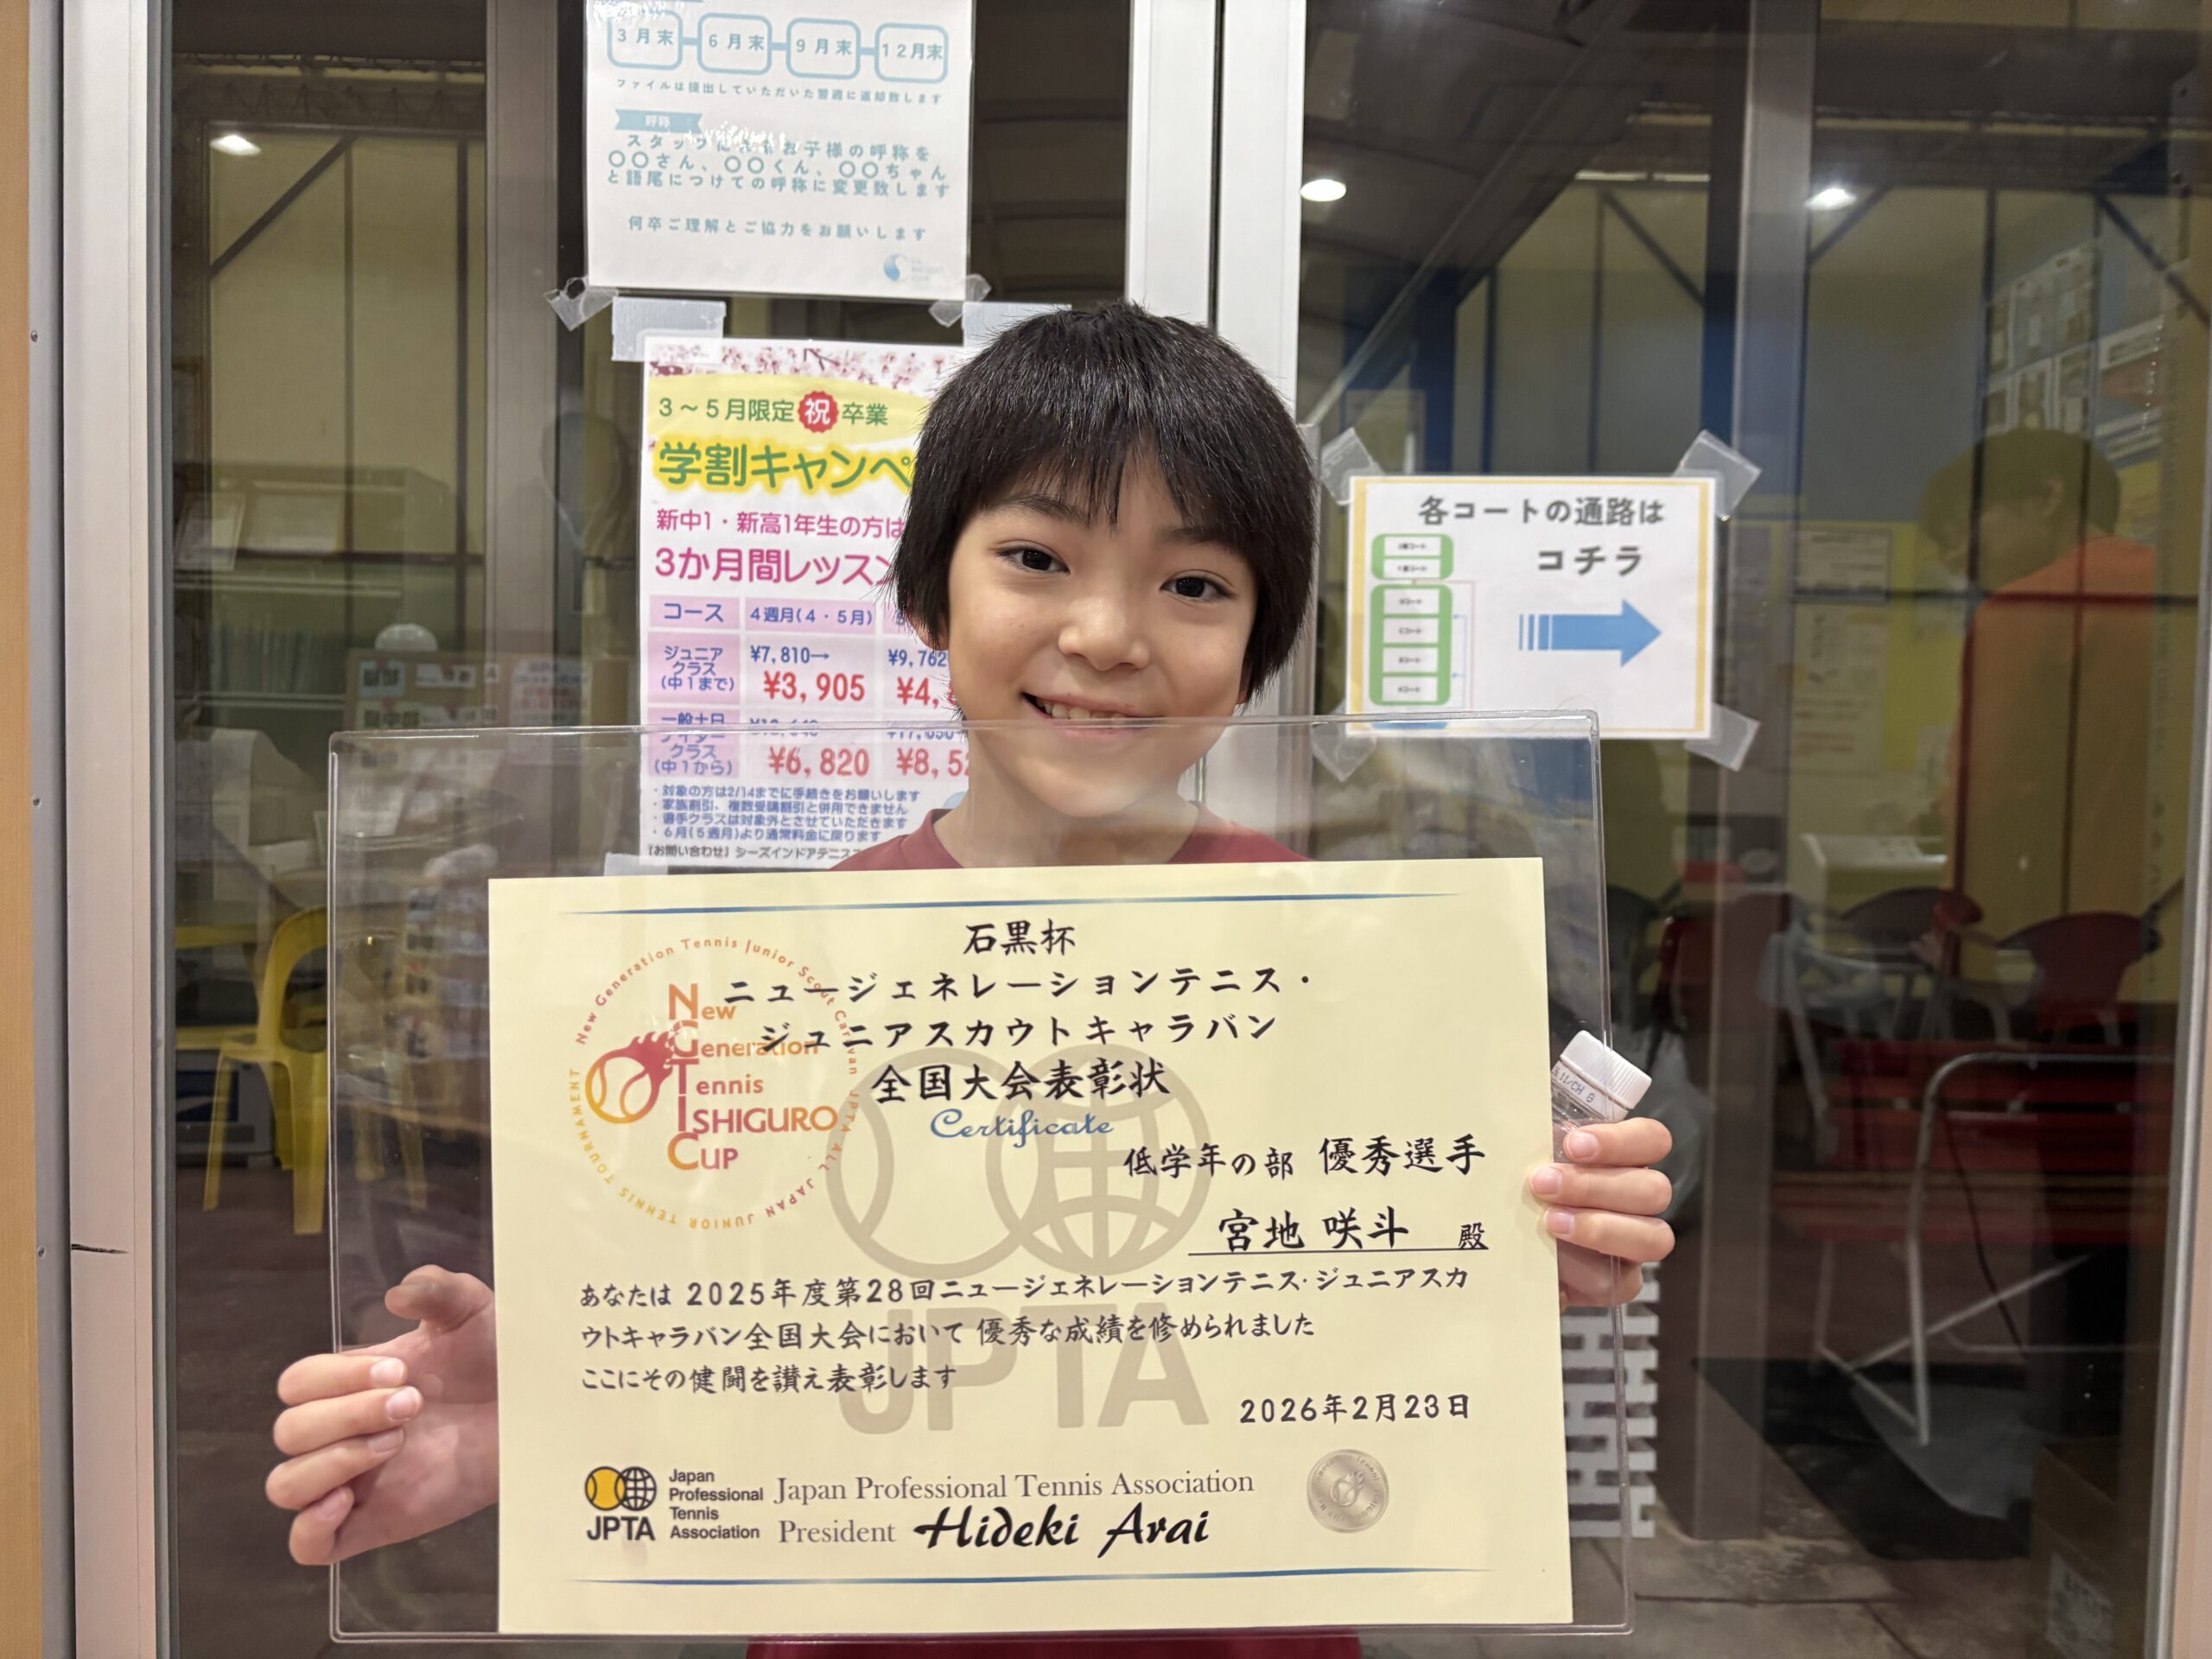 3月末 6月末 9月末 12月末
ファイルは提出していただいた翌週に返却致します
呼称
スタッフ お子様の呼称を
〇〇さん、〇〇くん、〇〇ちゃん
と語尾につけての呼称に変更致します
何卒ご理解とご協力をお願いします
3～5月限定 祝 卒業
学割キャンペ
新中1・新高1年生の方は
3か月間レッスン
コース 4週月(4・5月)
ジュニア ¥7,810→ ¥9,762
クラス
(中1まで) ¥3,905 ¥4,
一般土日
ナイター
クラス
(中1から) ¥6,820 ¥8,52
・対象の方は2/14までに手続きをお願いします
・家族割引、複数受講割引と併用できません
・選手クラスは対象外とさせていただきます
・6月(5週月)より通常料金に戻ります
【お問い合わせ】シーズインドアテニス
各コートの通路は
コチラ
石黒杯
ニュージェネレーションテニス・
ジュニアスカウトキャラバン
全国大会表彰状
Certificate
New Generation Tennis Junior Scout Caravan JPTA ALL JAPAN JUNIOR TENNIS TOURNAMENT
New
Generation
Tennis
ISHIGURO
CUP
低学年の部 優秀選手
宮地 咲斗 殿
あなたは 2025年度第28回ニュージェネレーションテニス・ジュニアスカ
ウトキャラバン全国大会において 優秀な成績を修められました
ここにその健闘を讃え表彰します
2026年2月23日
JPTA
Japan
Professional
Tennis
Association
JPTA
Japan Professional Tennis Association
President Hideki Arai